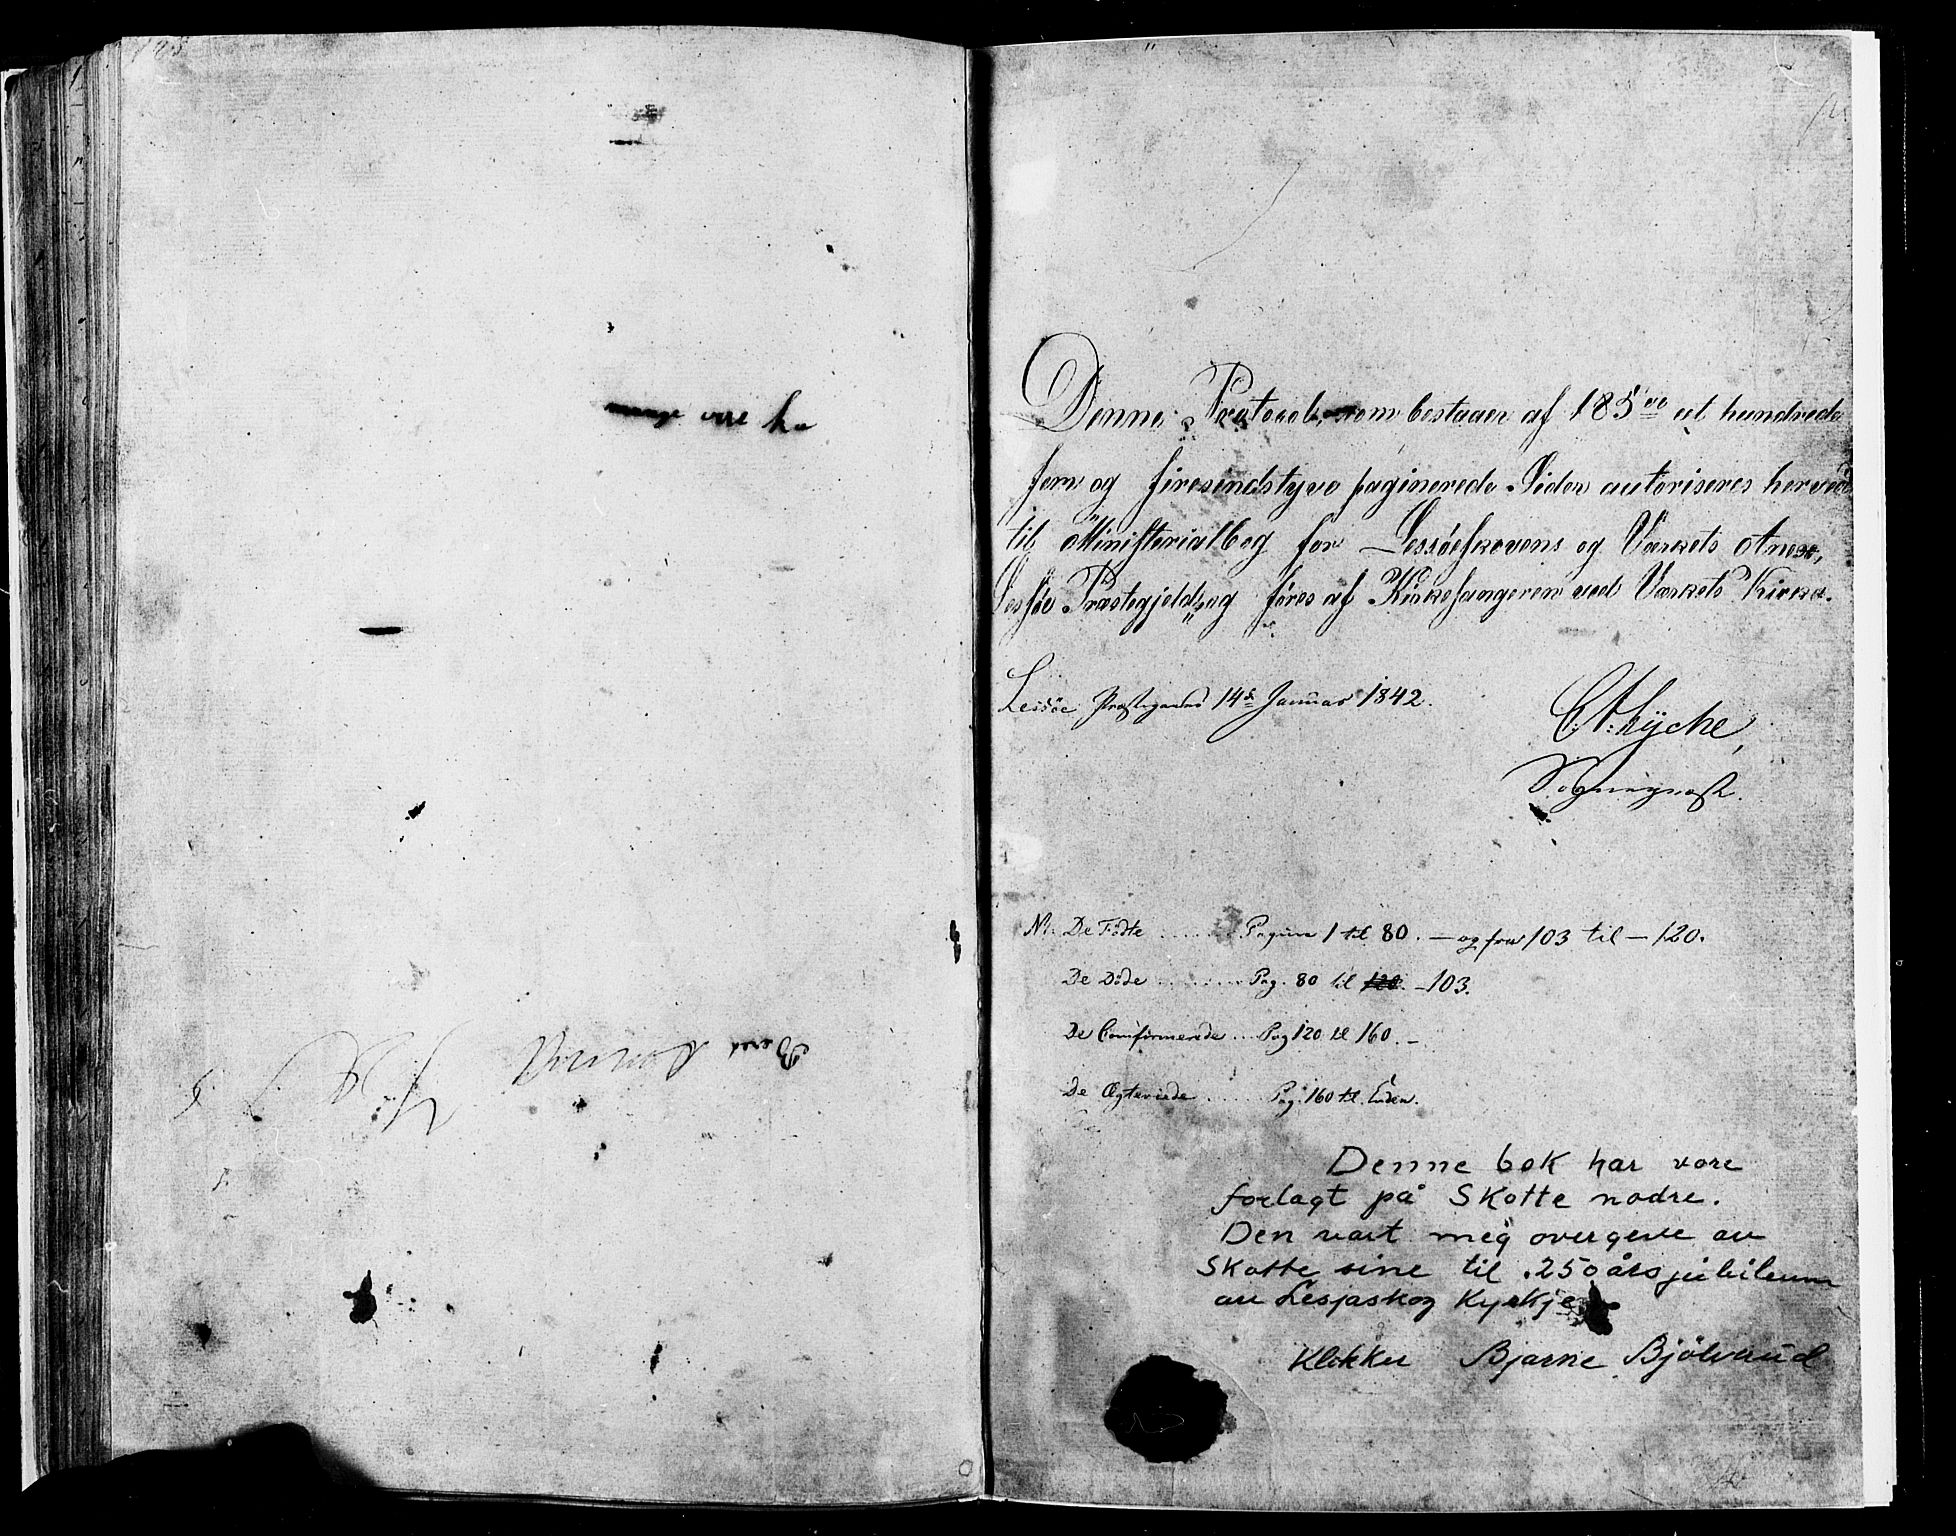 185
mange
Denne Protocol, som bestaaer af 185 et hundrede
fem og firesindstyve paginerede Sider autoriseres herved
til Ministerialbog for Lessøeskovens og Værkets Annex,
Lessøe Præstegjeld, og føres af Kirkesangeren ved Værkets Kirke.
Lessøe Præstegaard 14de Januar 1842.
Lyche,
Sogneprest.
De Födte ........ Pagina 1 til 80. — og fra 103 til — 120.
De Döde ........ Pag. 80 til 120. — 103.
De Comfirmerede ... Pag 120 til 160. —
De Ægteviede ...... Pag. 160 til Enden.
Denne bok har vore
forlagt på Skotte nødre.
Den vart meg overgeve av
Skotte sine til 250 års jubileum
av Lesjaskog Kyrkje
Klokker Bjarne Bjölverud